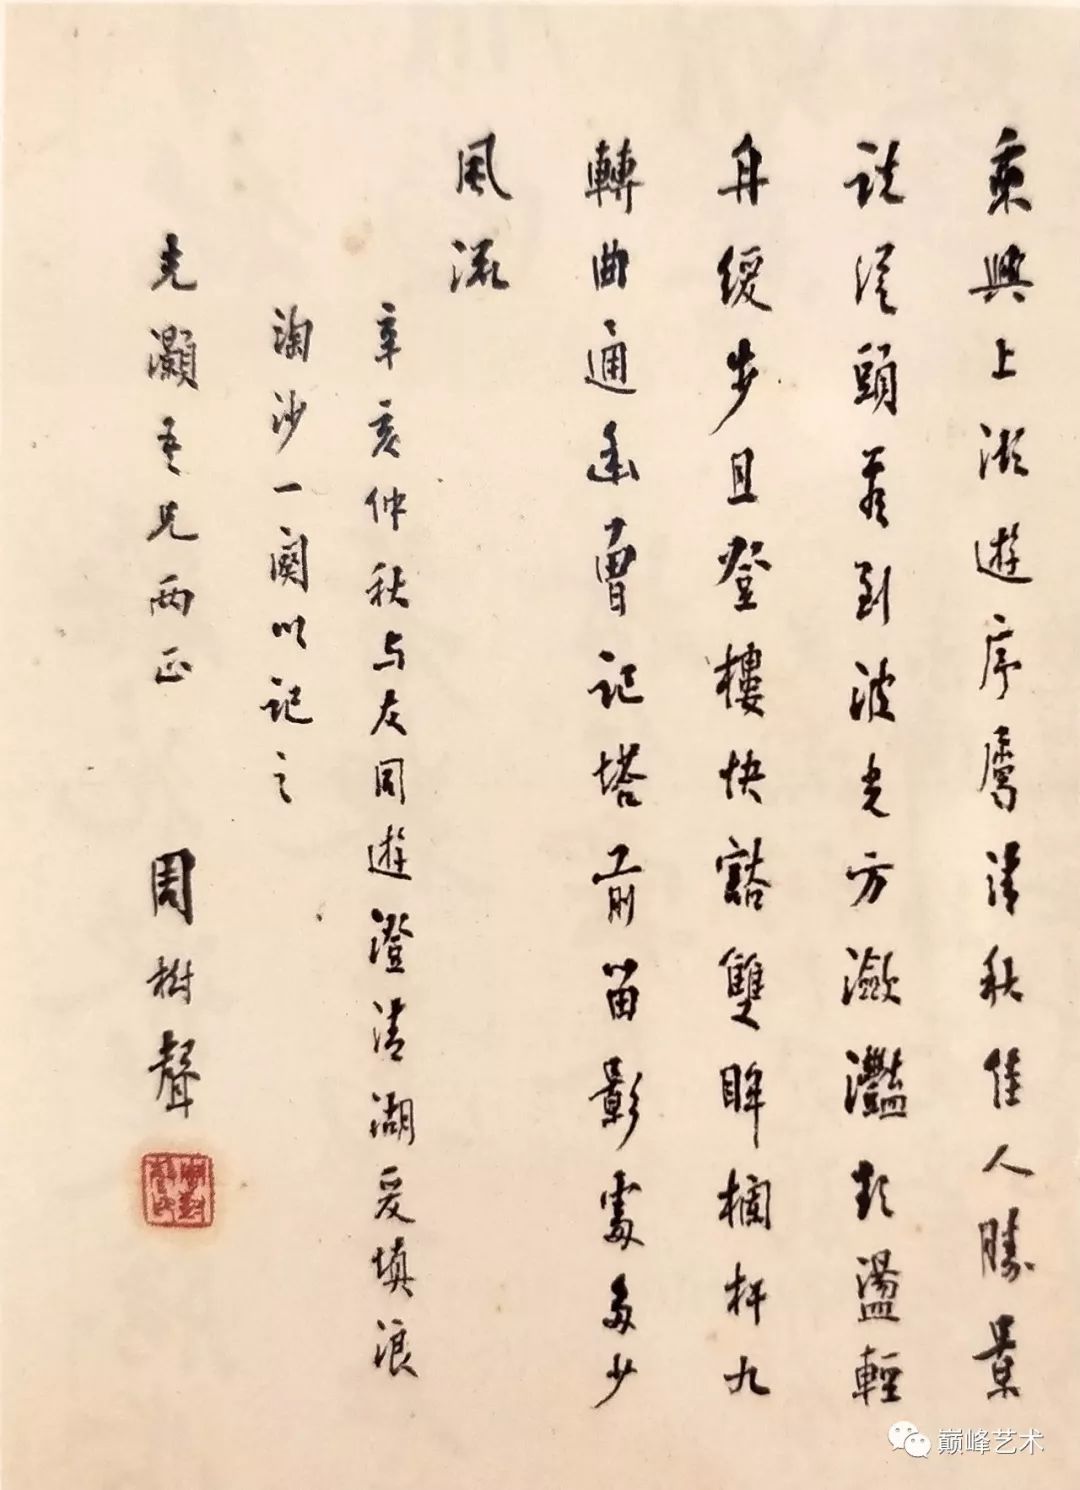 乘興上湖遊序屬清秋佳人勝景
説從頭看到波光方瀲灩盪輕
舟緩步且登樓快豁雙眸欄杆九
轉曲通幽曾記塔前留影處多少
風流
辛亥仲秋与友同遊澄清湖爰填浪
淘沙一闋以記之
光灝吾兄兩正 周樹聲
巅峰艺术